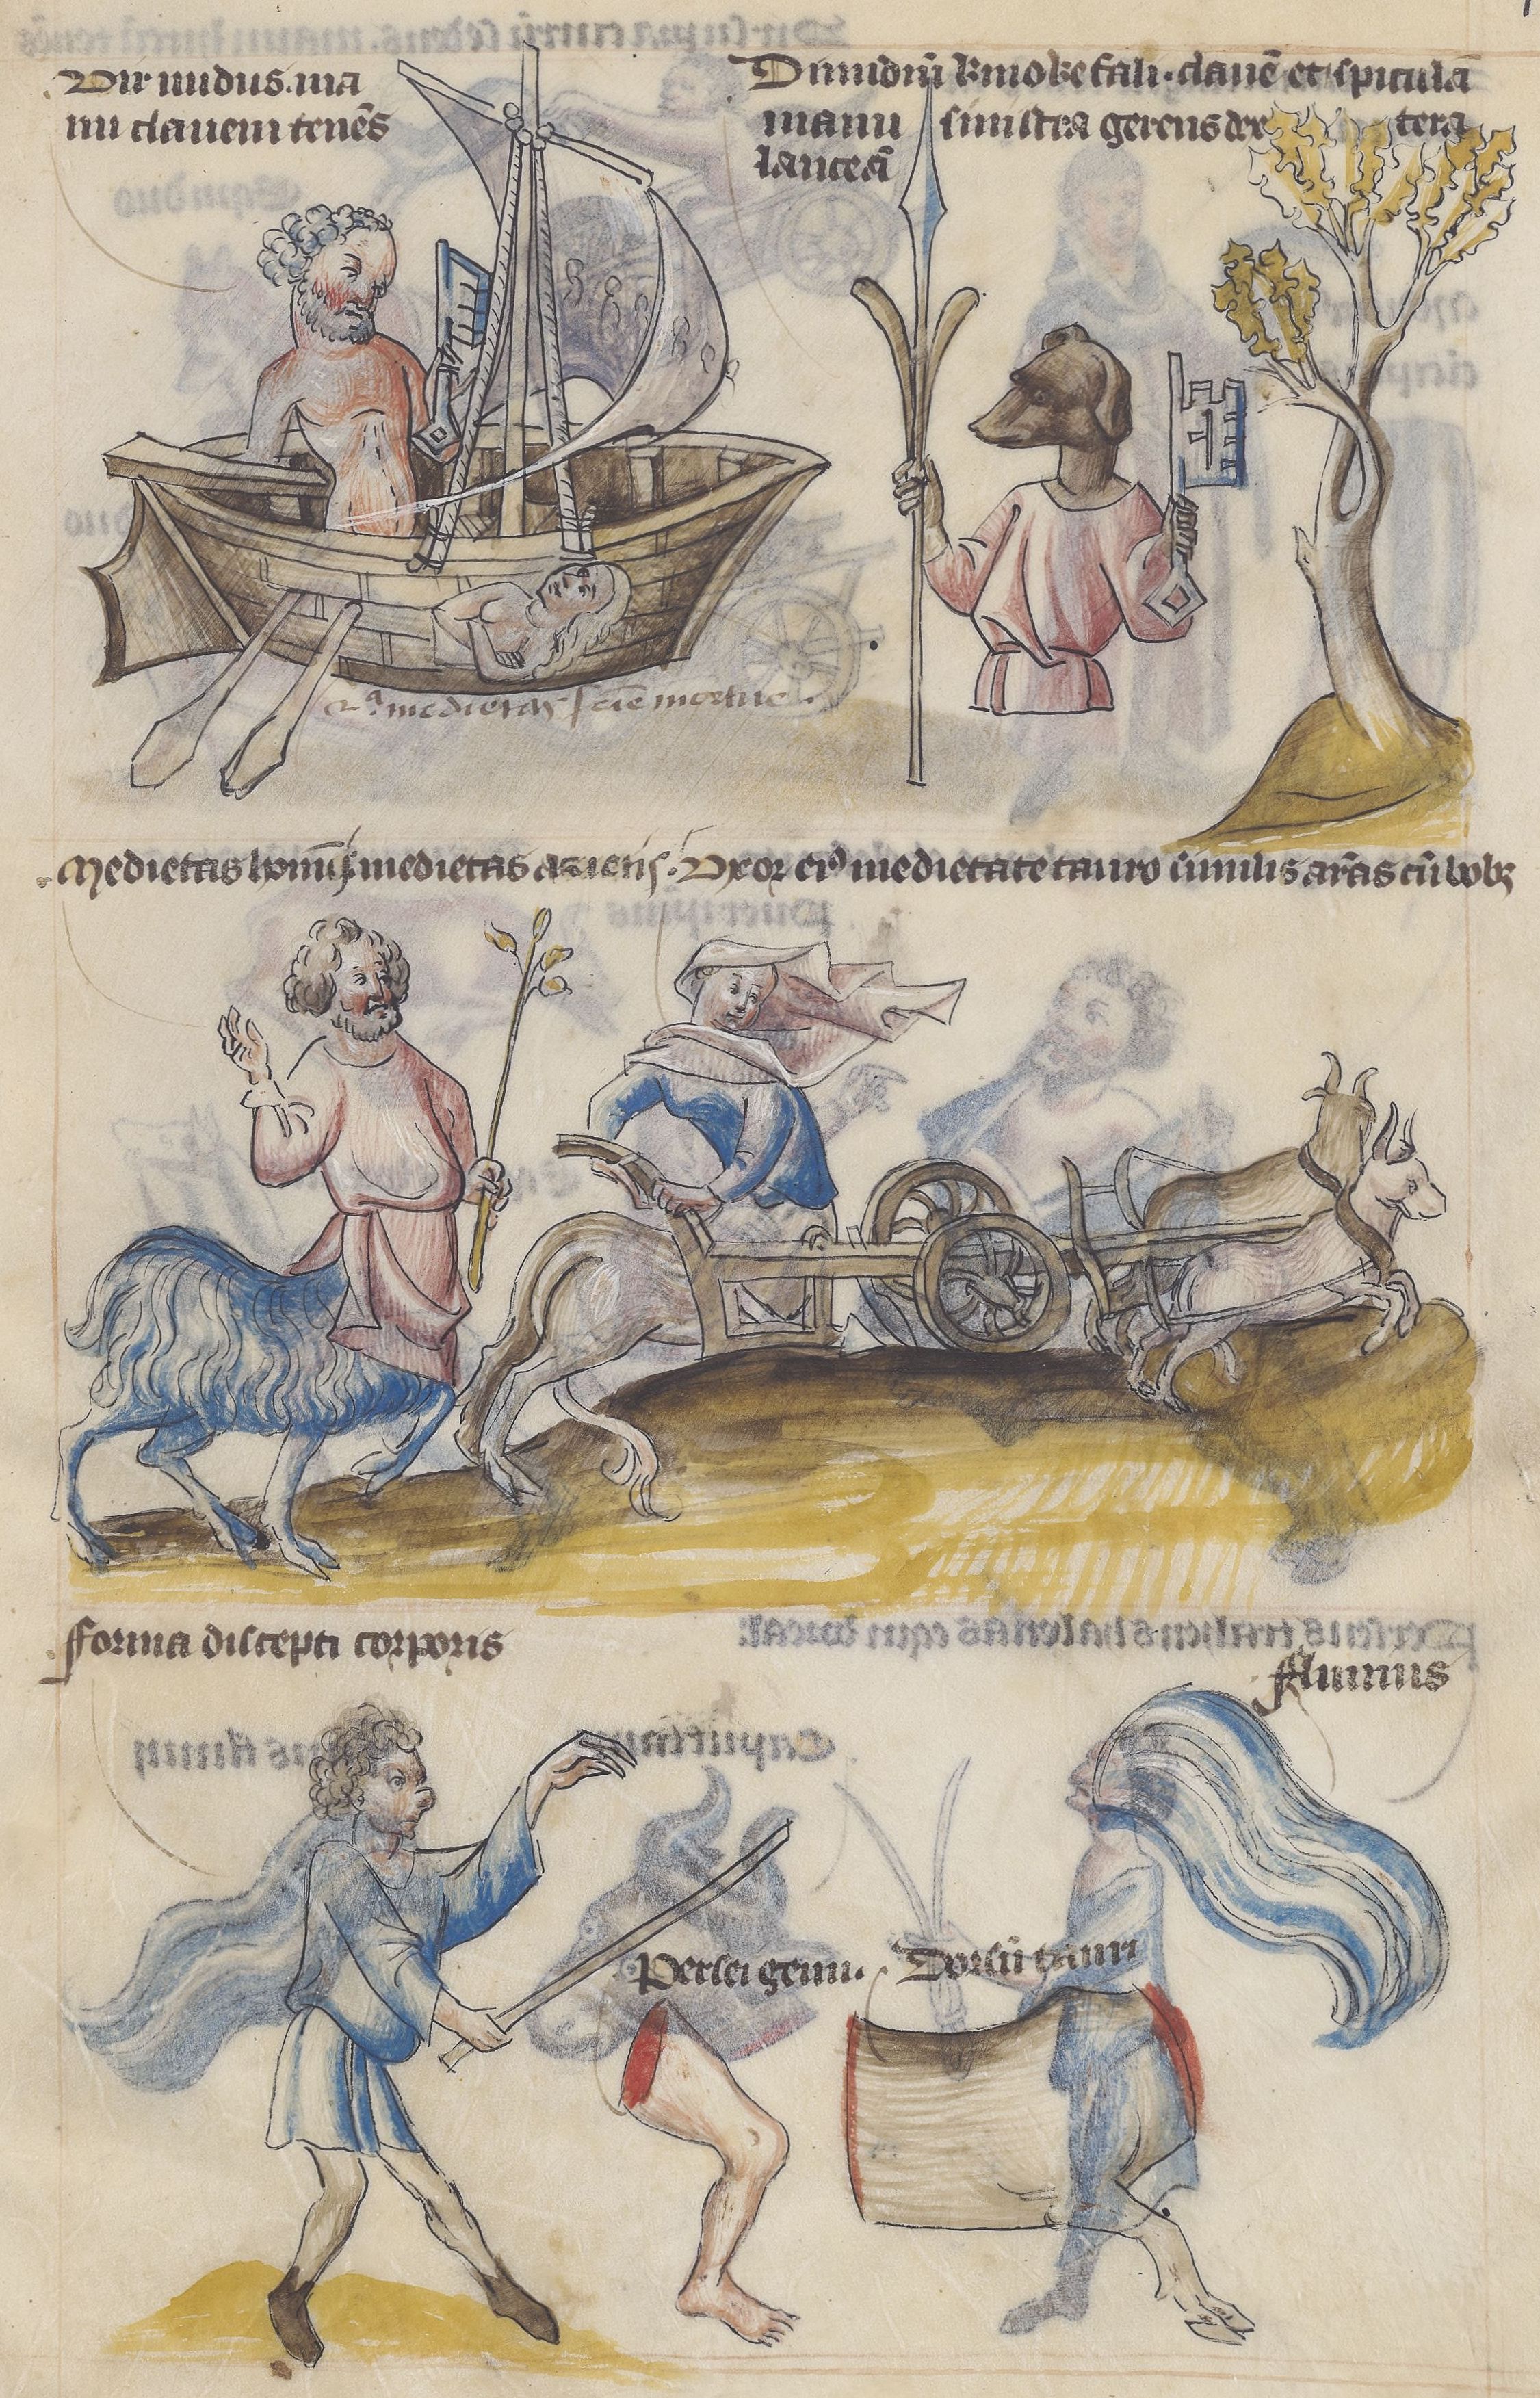 Vir nudus. ma
nu clauem tenēs
Dimidiū kinokefali. clauē et spiculā
manu sinistra gerens dex tera
lanceā
2ᵃ medietas
Medietas hominis medietas arietis. Vxor eiꝰ medietate tauro similis arās cū bobꝫ
Forma discepti corporis
Flumius
Persei genu. Dorsū tauri